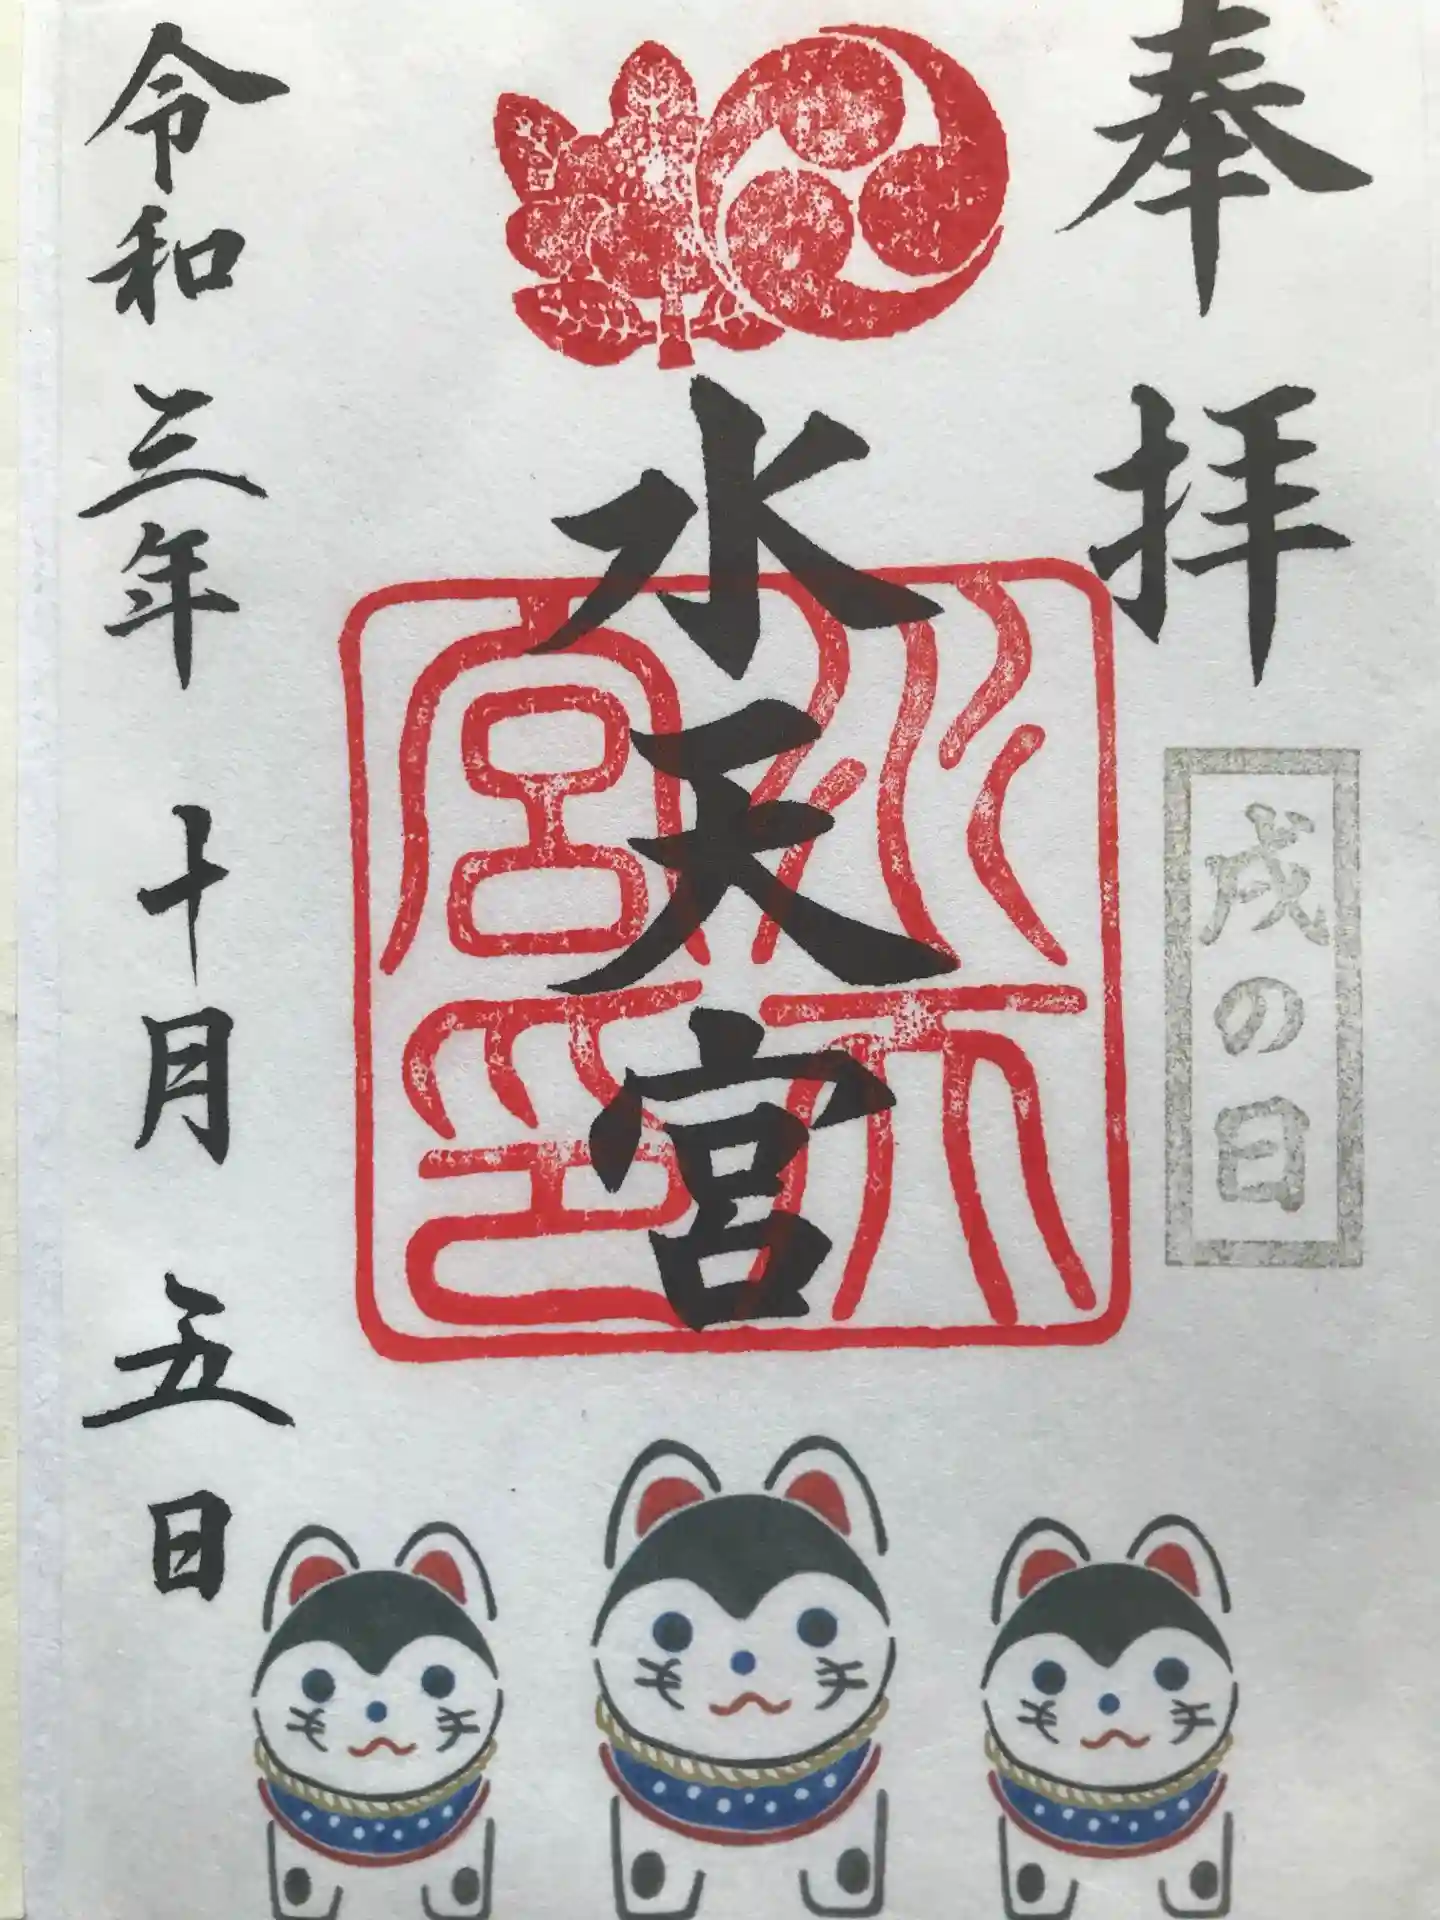 奉拝
戌の日
水天宮
水天宮印
令和三年十月五日